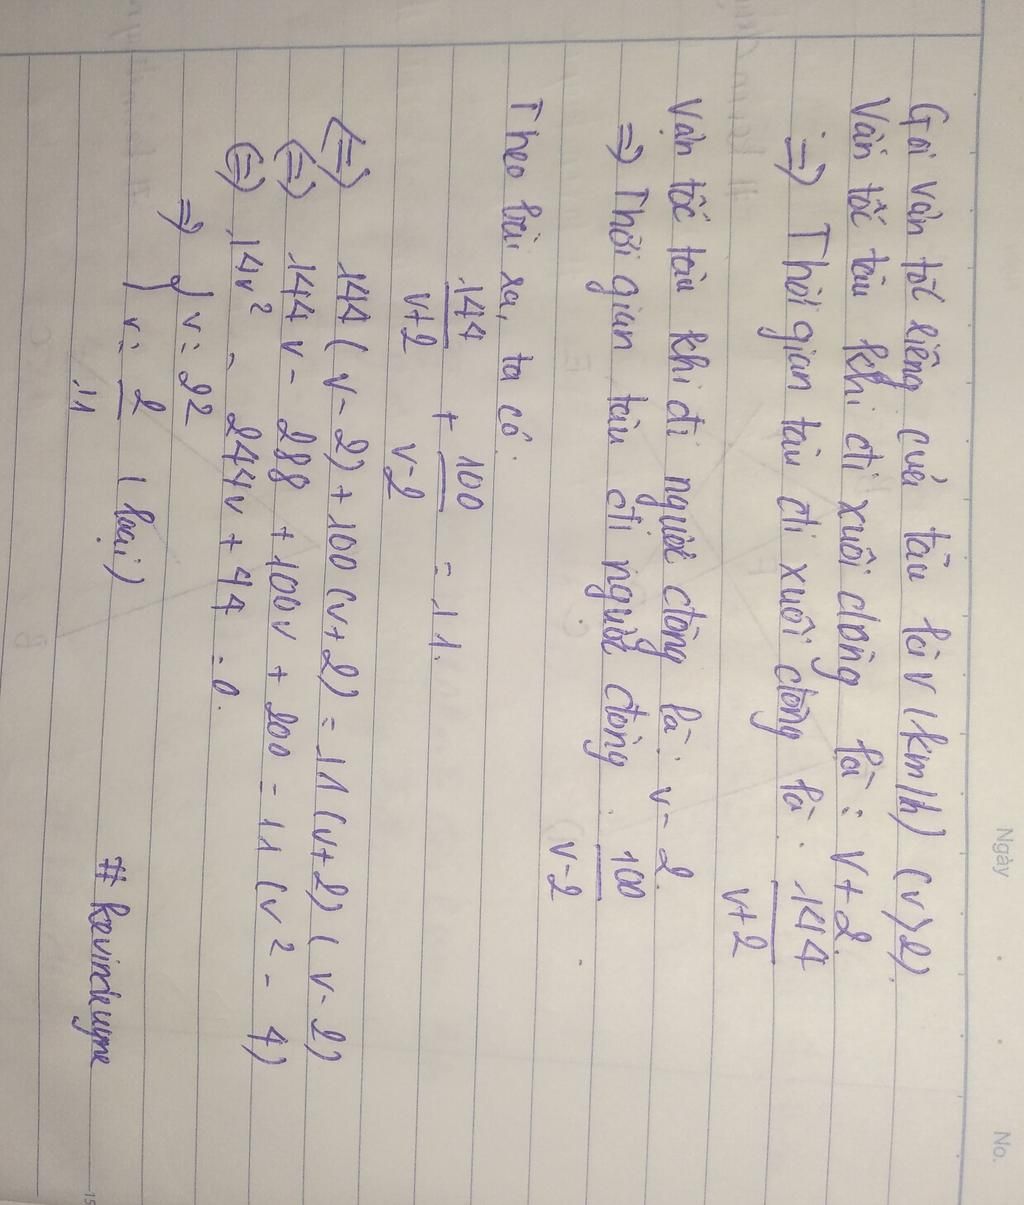 Ngày
No.
Gọi vận tốc riêng của tàu là v (km/h) (v>2)
Vận tốc tàu khi đi xuôi dòng là : v+2.
=> Thời gian tàu đi xuôi dòng là . 144/v+2
Vận tốc tàu khi đi ngược dòng là . v-2.
=> Thời gian tàu đi ngược dòng . 100/v-2
Theo bài ra, ta có.
144/v+2 + 100/v-2 = 11.
<=> 144 (v-2) + 100 (v+2) = 11 (v+2) (v-2)
(=) 144v - 288 + 100v + 200 = 11 (v² - 4)
(=) 11v² - 244v + 44 = 0.
=> { v = 22
v = 2/11 (loại)
# kevinduyne
15